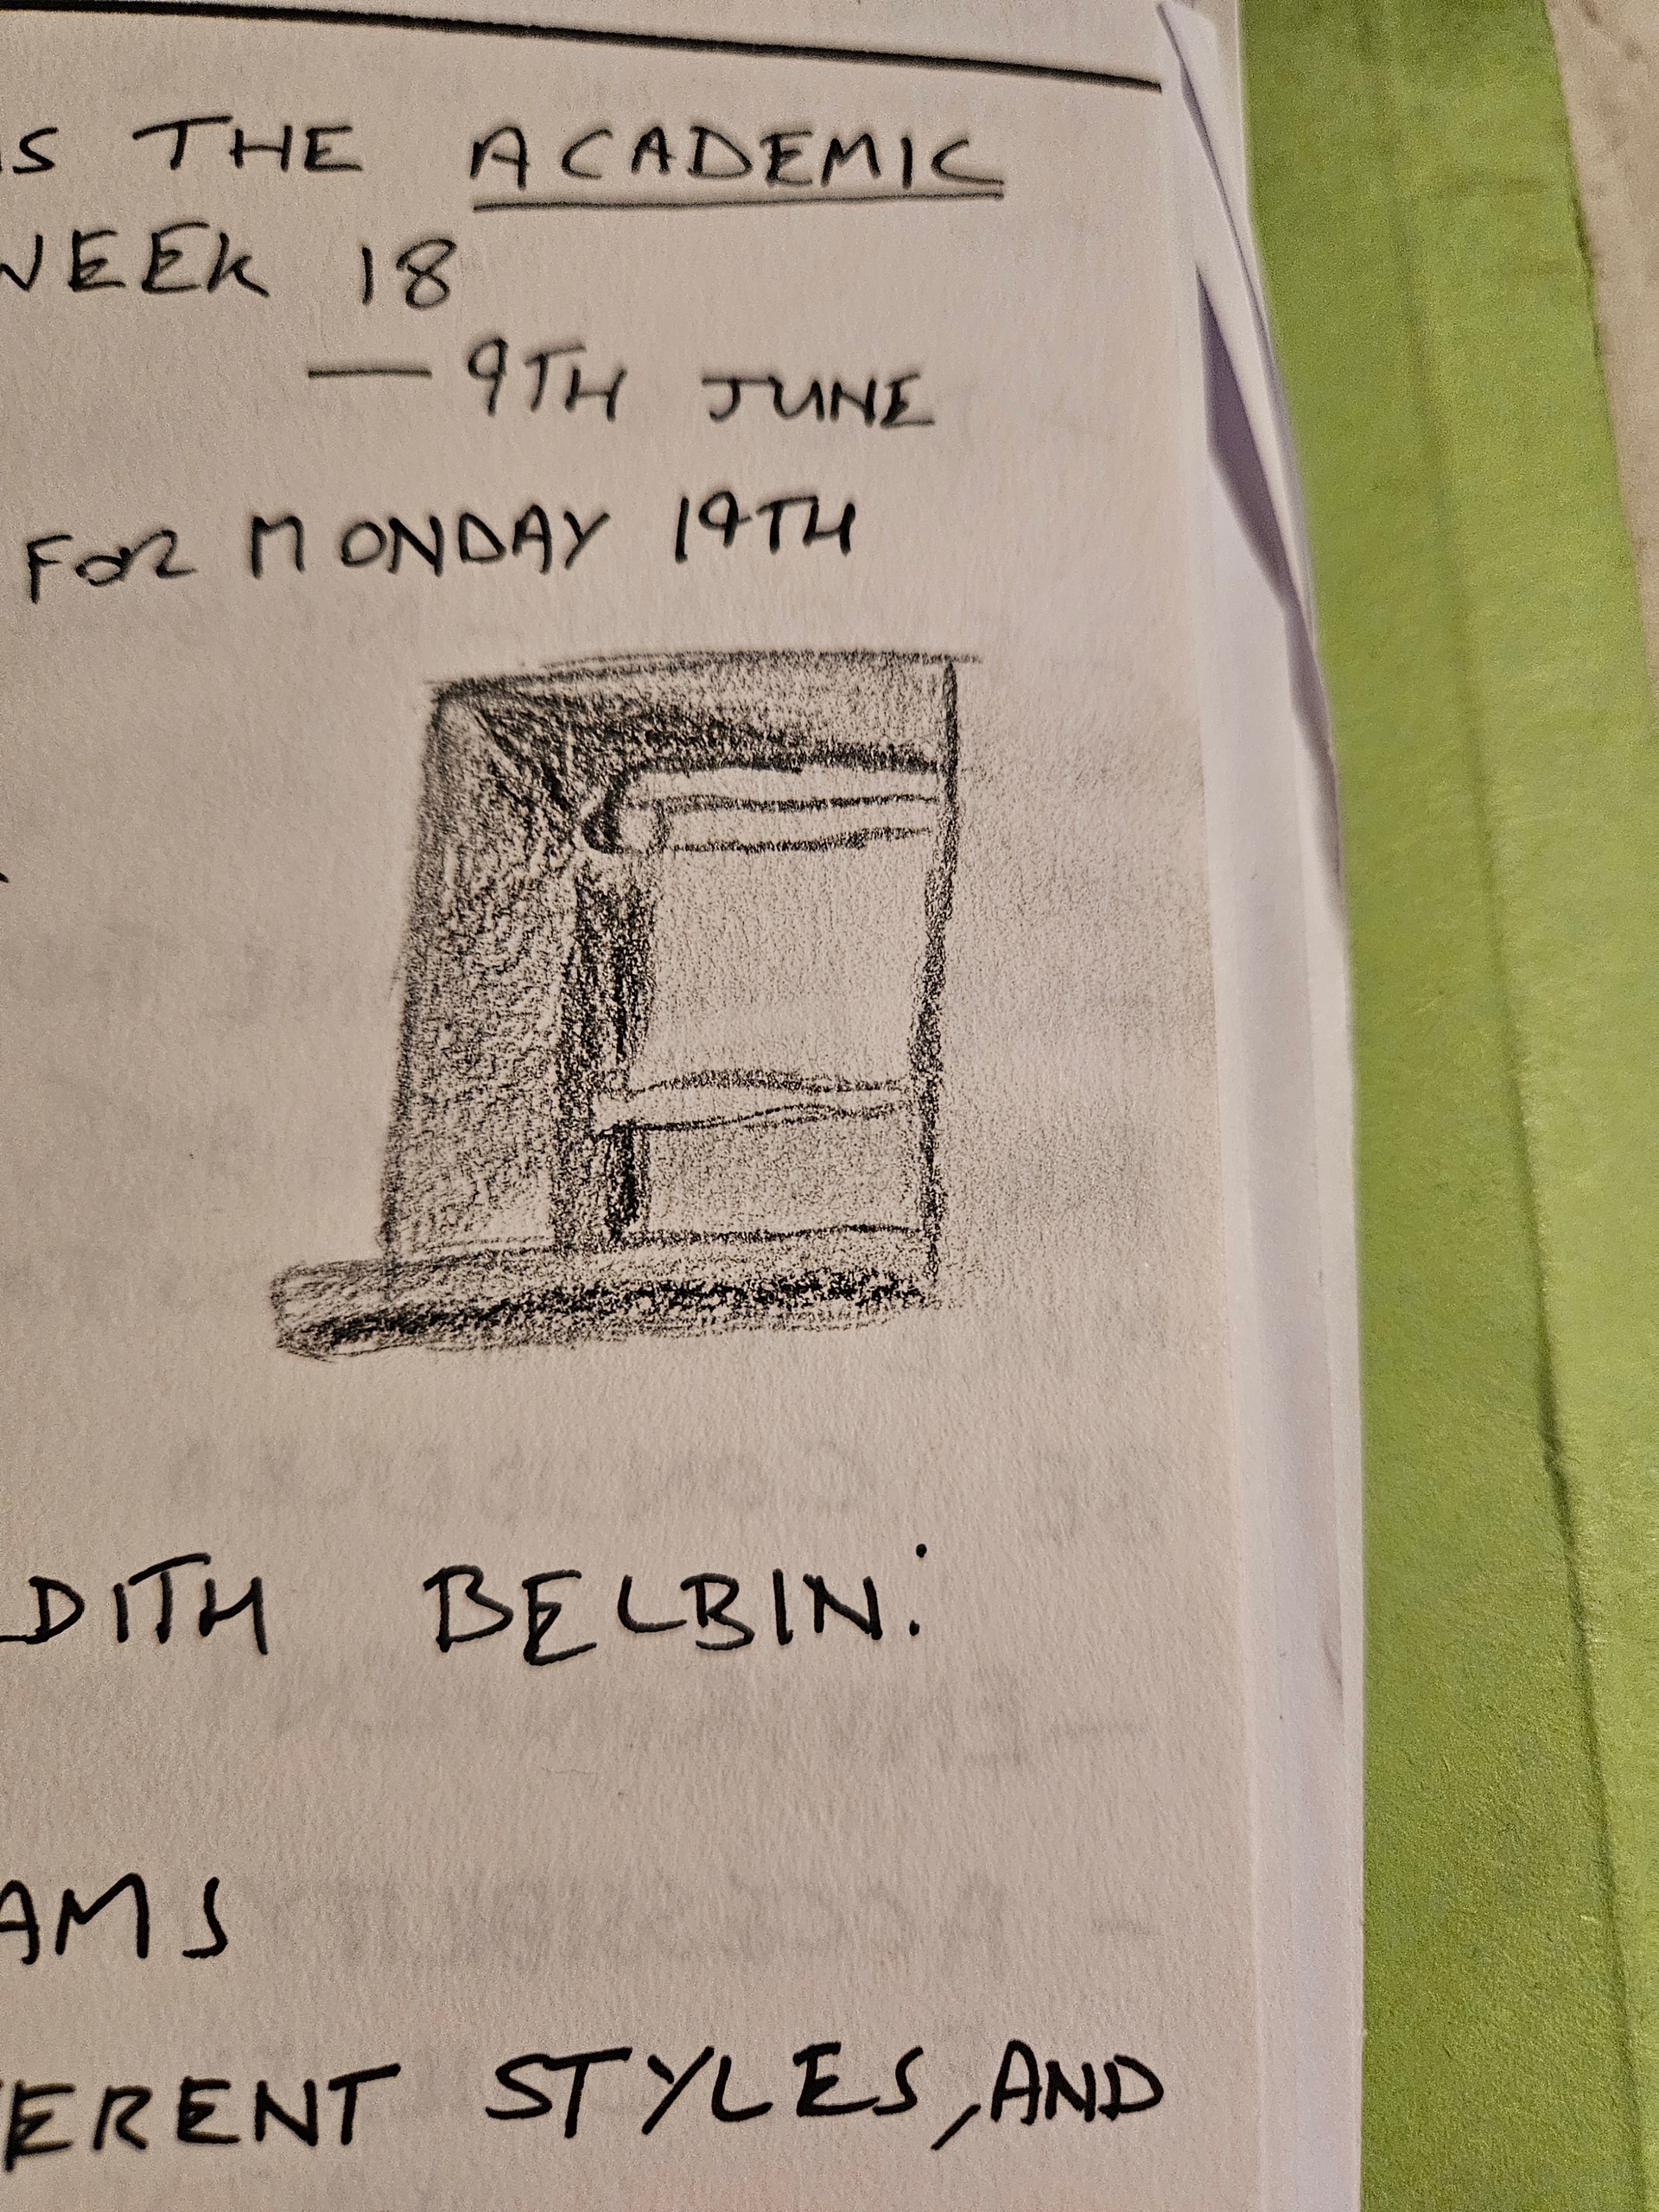 THE ACADEMIC
WEEK 18
— 9TH JUNE
FOR MONDAY 19TH
DITH BELBIN:
AMS
ERENT STYLES, AND